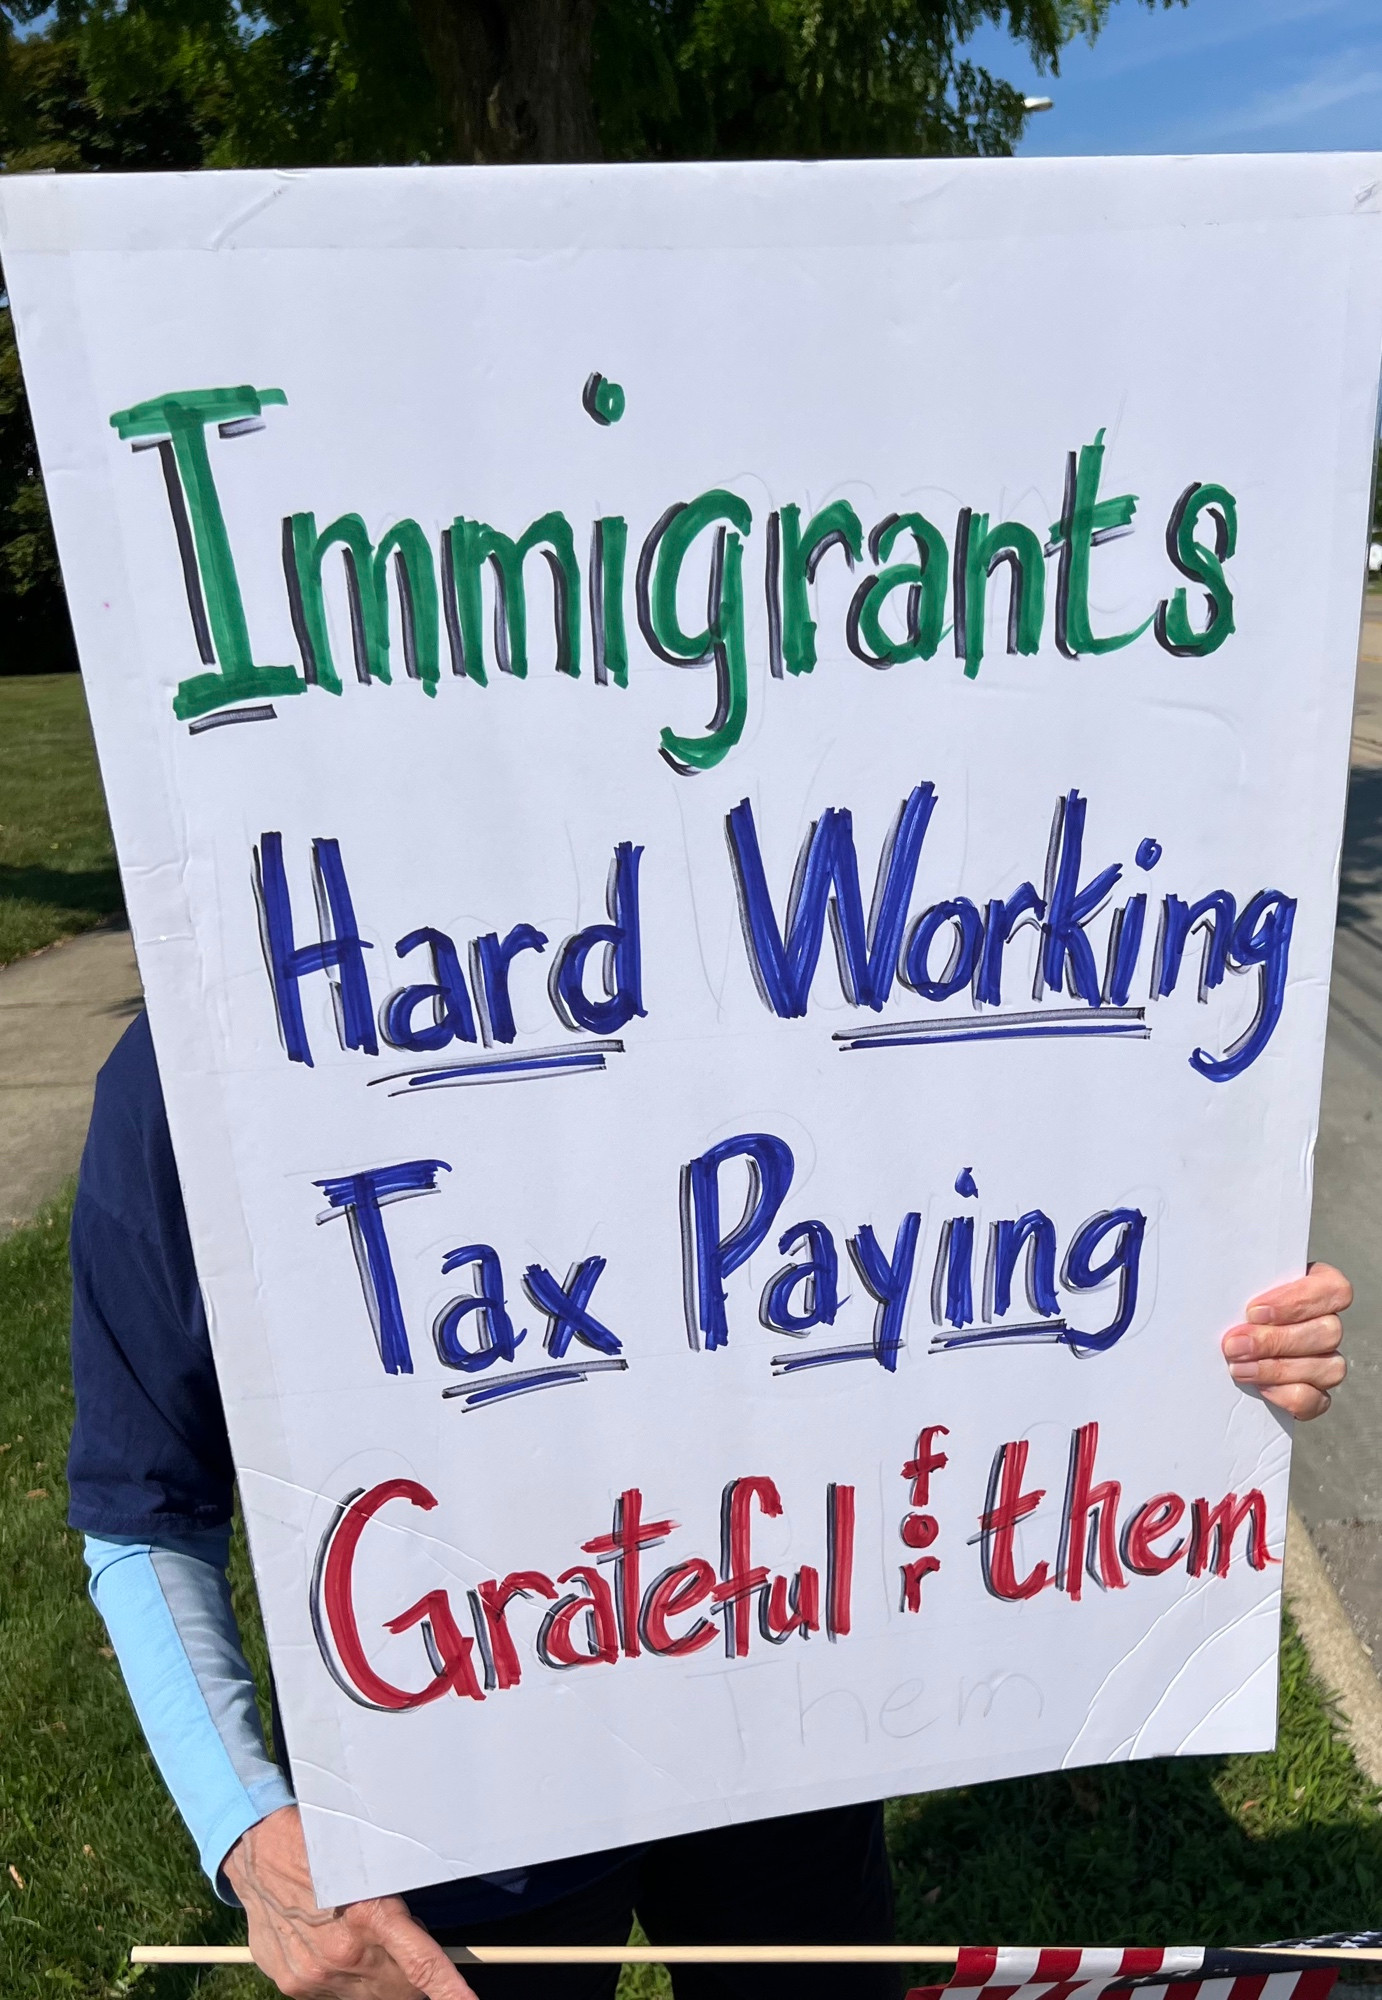 Immigrants
Hard Working
Tax Paying
Grateful for them
Them